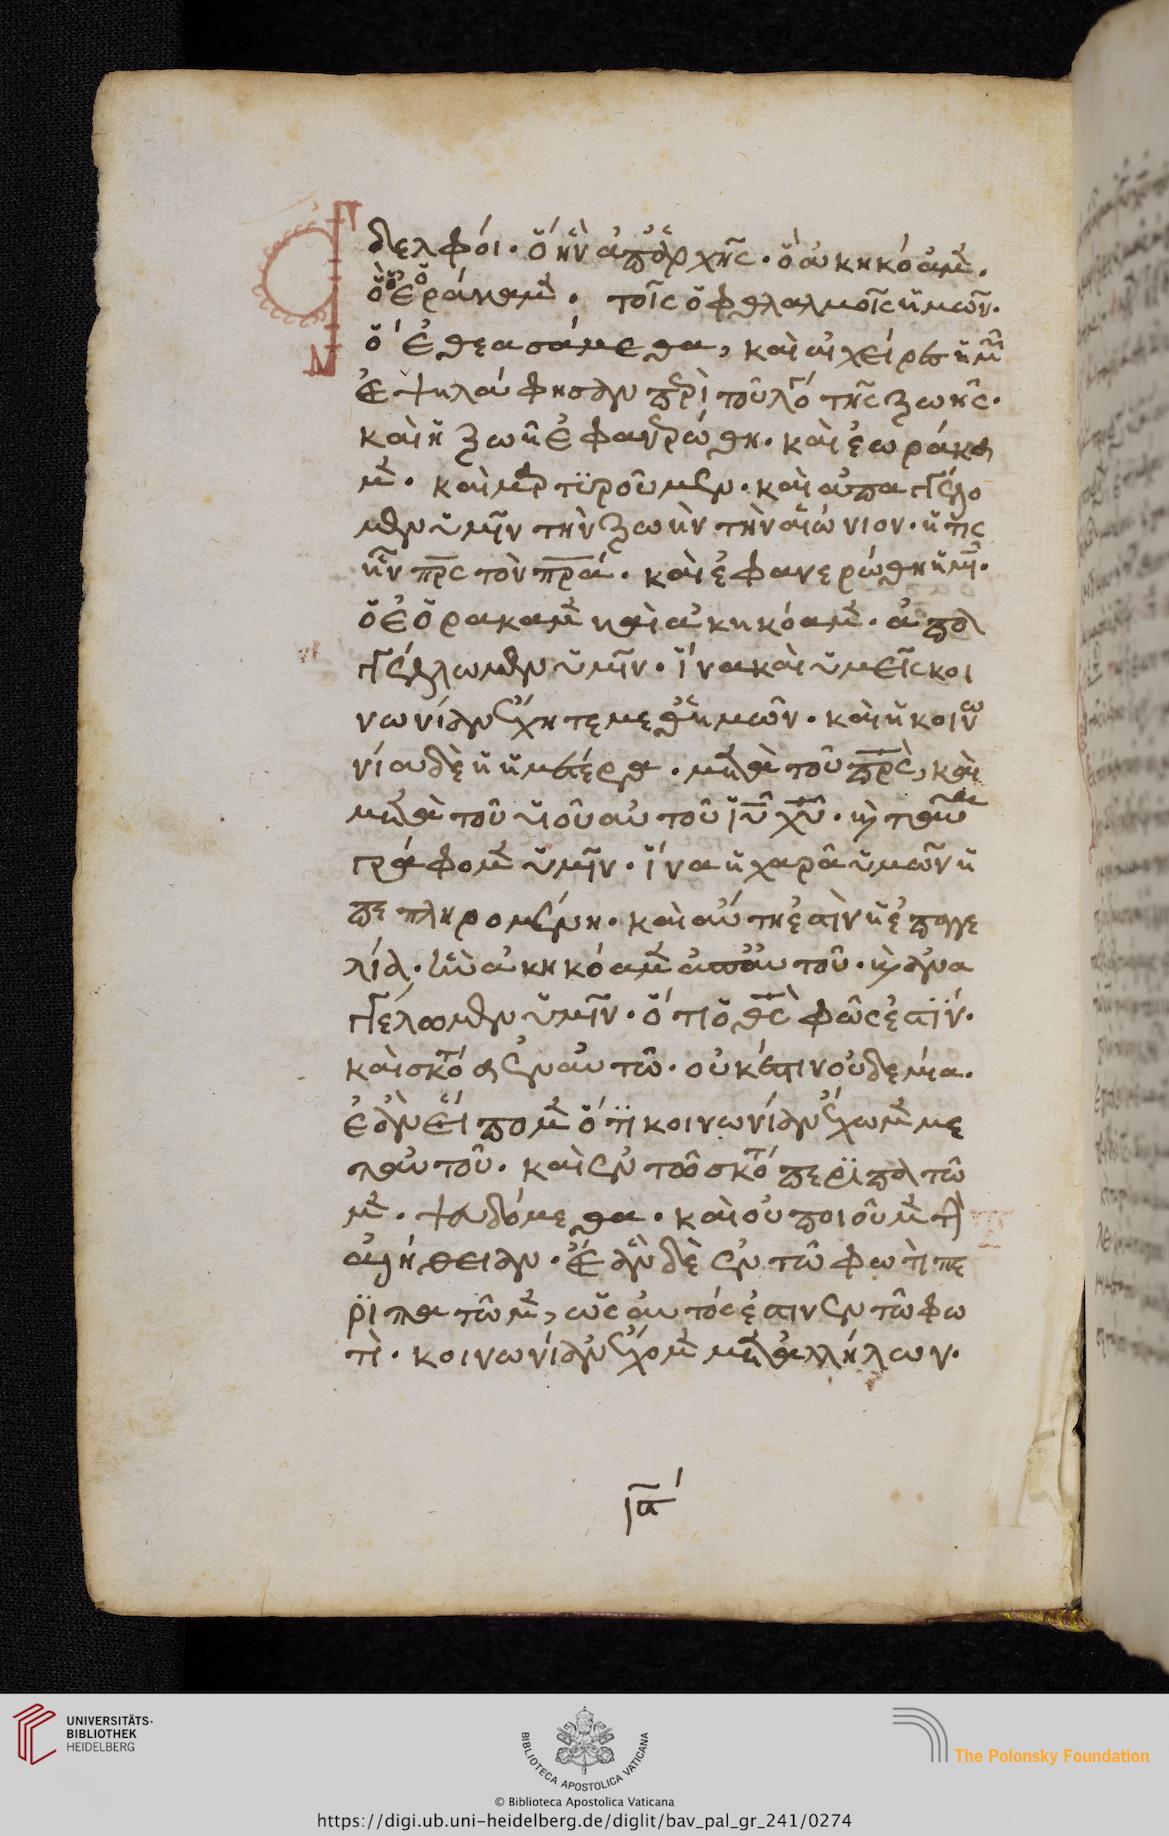 Ἀδελφοί· ὃ ἦν ἀπ' ἀρχῆς· ὃ ἀκηκόαμεν·
ὃ ἑοράκαμεν· τοῖς ὀφθαλμοῖς ἡμῶν·
ὃ ἐθεασάμεθα, καὶ αἱ χεῖρες ἡμῶν
ἐψηλάφησαν περὶ τοῦ λόγου τῆς ζωῆς·
καὶ ἡ ζωὴ ἐφανερώθη· καὶ ἑωράκα
μεν· καὶ μαρτυροῦμεν· καὶ ἀπαγγέλο
μεν ὑμῖν τὴν ζωὴν τὴν αἰώνιον· ἥτις
ἦν πρς τὸν πρα· καὶ ἐφανερώθη ἡμῖν·
ὃ ἑοράκαμεν καὶ ἀκηκόαμεν· ἀπα
γγέλλωμεν ὑμῖν· ἵνα καὶ ὑμεῖς κοι
νωνίαν ἔχητε μεθ' ἡμῶν· καὶ ἡ κοινω
νία δὲ ἡ ἡμετέρα· μετὰ τοῦ πρς, καὶ
μετὰ τοῦ υἱοῦ αὐτοῦ ιυ χυ· καὶ ταῦτα
γράφομεν ὑμῖν· ἵνα ἡ χαρὰ ὑμῶν ἦ
πεπληρομένη· καὶ αὕτη ἐστὶν ἡ ἐπαγγε
λία· ἣν ἀκηκόαμεν ἀπ' αὐτοῦ· καὶ ἀνα
γγέλωμεν ὑμῖν· ὅτι ὁ θς φῶς ἐστίν·
καὶ σκοτία ἐν αὐτῶ· οὐκ ἔστιν οὐδεμία·
ἐὰν εἴπομεν ὅτι κοινωνίαν ἔχωμεν με
τ' αὐτοῦ· καὶ ἐν τῶ σκότει περιπατῶ
μεν· ψευδόμεθα· καὶ οὐ ποιοῦμεν τὴν
ἀλήθειαν· ἐὰν δὲ ἐν τῶ φωτὶ πε
ριπατῶμεν, ὡς αὐτός ἐστιν ἐν τῶ φω
τὶ· κοινωνίαν ἔχομεν μετ' ἀλλήλων·
UNIVERSITÄTS-
BIBLIOTHEK
HEIDELBERG
BIBLIOTECA APOSTOLICA VATICANA
The Polonsky Foundation
© Biblioteca Apostolica Vaticana
https://digi.ub.uni-heidelberg.de/diglit/bav_pal_gr_241/0274